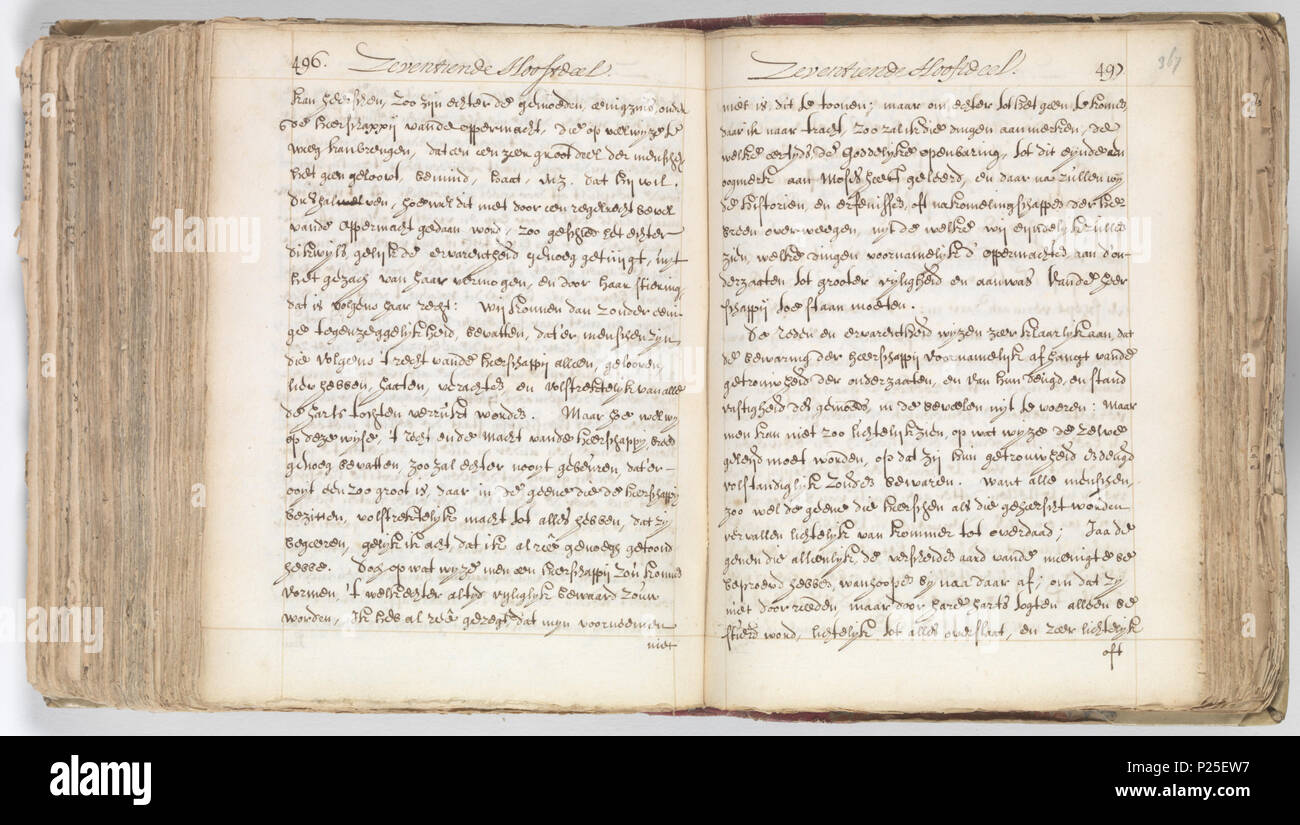 496. Zeventiende Hoofdeel.
kan heerschen, zoo zijn echter de gemoeden, eenigzins, onder
de heerschappij vande oppermacht, die op veel wyze te
weeg kan brengen, dat een zeer groot deel der menschen
het geen gelooft, bemind, haat, enz. dat hij wil.
Dieshalven, hoewel dit niet door een regelrecht bevel
vande oppermacht gedaan word, zoo geschied het echter
dikwijls, gelijk de ervarentheid genoeg getuigt, uyt
het gezach van haar vermogen, en door haar stiering,
dat is volgens haar recht: Wij konnen dan zonder eeni-
ge tegenzeggelykheid, bevatten, dat'er menschen zyn
die volgens 't recht vande heerschappij alleen, gelooven,
lief hebben, haaten, verachten en volstrektelyk van alle
de harts tochten verrukt worden. Maar hoe wel wy
op deze wyse, 't recht ende macht vande heerschappy, breed
genoeg bevatten, zoo zal echter nooyt gebeuren dat'er
ooyt een zoo groot is, daar in de geene die de heerschappij
bezitten, volstrektelyk macht tot alles hebben, dat zy
begeeren, gelyk ik acht, dat ik al reê genoegh getoond
hebbe. Doch op wat wyze men een heerschappij zou konnen
vormen, 't welk echter altyd vyliglyk bewaard zouw
worden, Ik heb al reê gezegt, dat myn voorneemen
niet
Zeventiende Hoofdeel. 497
367
niet is, dit te toonen; maar om echter tot het geen te komen
daar ik naar tracht, zoo zal ik die dingen aanmerken, de
welke eertyds, de Goddelyke openbaring, tot dit eynde en
oogmerk aan Moses heeft geleerd, en daar na zullen wy
de historien, en erfenissen, oft nakomelingschappen der Hee-
breen overweegen, uyt de welke wij eyndelyk zullen
zien, welke dingen voornamelyk d'oppermachten aan d'on-
derzaaten tot grooter vyligheid en aanwas vande heer-
schappij toestaan moeten.
De reden en ervarentheid wyzen zeer klaarlyk aan, dat
de bewaring der heerschappij voornamelijk afhangt vande
getrouwheid der onderzaaten, en van hun deugd, en stand
vastigheid des gemoeds, in de beveelen uyt te voeren: Maar
men kan niet zoo lichtelyk zien, op wat wyze de zelve
geleid moet worden, op dat zij hun getrouwheid en deugd
volstandiglyk zouden bewaren. Want alle menschen,
zoo wel de geene die heerschen als die geheerscht worden
vervallen lichtelyk van kommer tot overdaad; Jaa de
geenen die alleenlyk, de verscheide aard vande meenigte be
beproefd hebben, wanhoopen by naa daar af; om dat zy
niet door reeden, maar door hare harts togten alleen be
stierd word, lichtelyk tot alles overslaat, en zeer lichtelyk
oft
alamy
alamy
Image ID: P25EW7
www.alamy.com